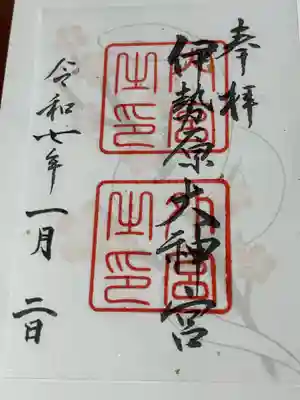 奉拝
伊勢原大神宮
令和七年一月二日